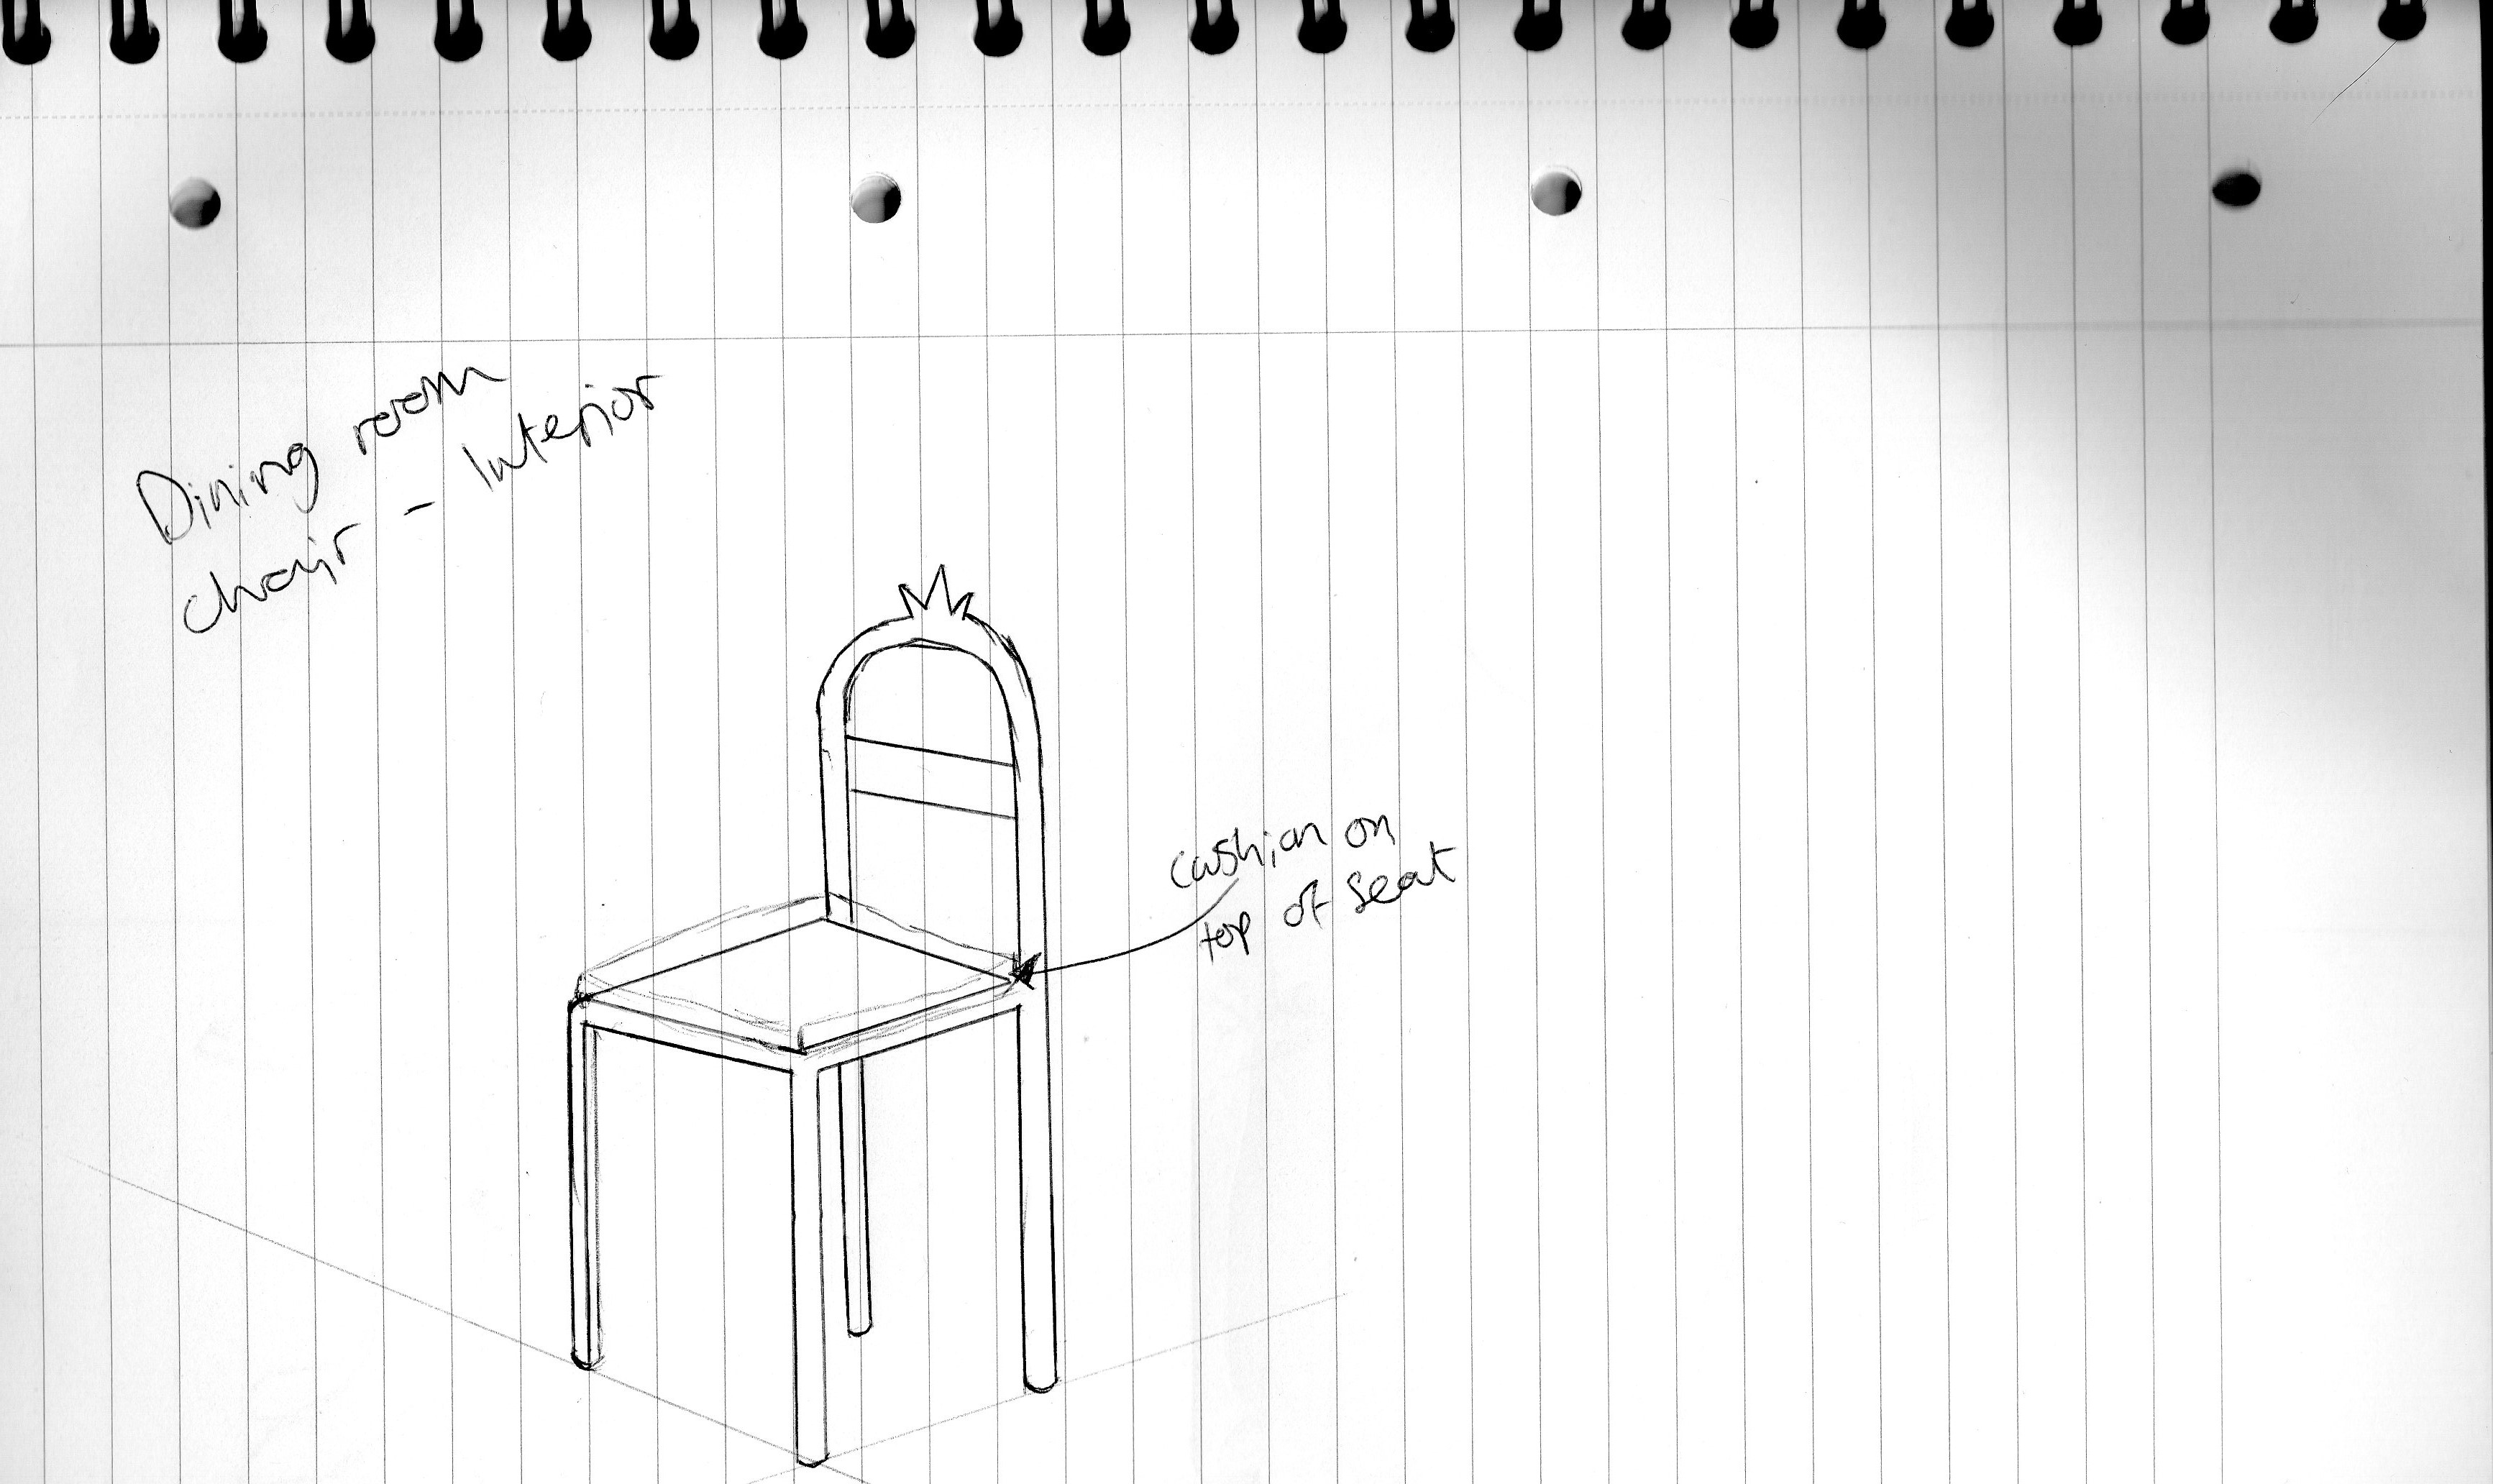 Dining room
chair - Interior
cushion on
top of seat